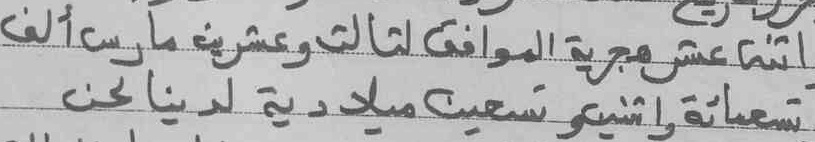 اثنا عشر هجرية الموافق لثالث وعشرين مارس ألف
تسعمائة واثنين وتسعين ميلادية لدينا نحن